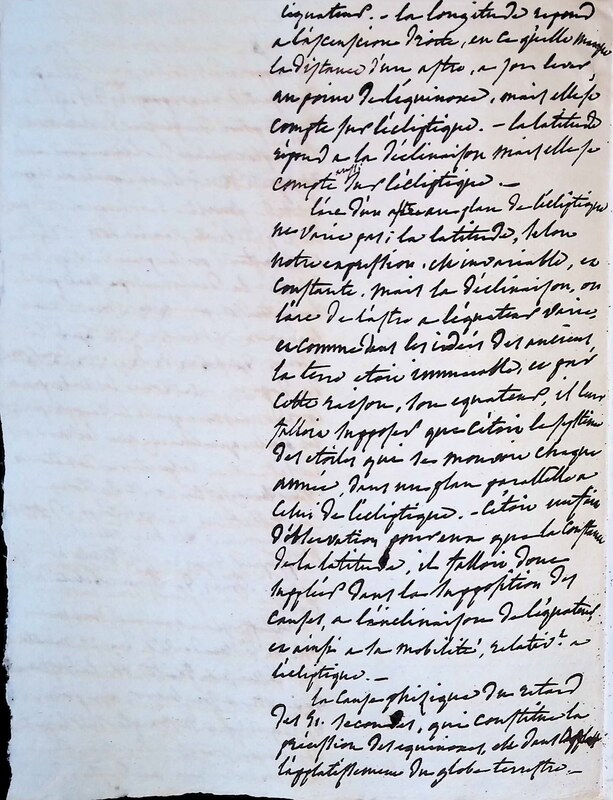 l'équateur. - la longitude repond
a l'ascension droite, en ce qu'elle marque
la distance d'un astre, a son lever
au point de l'équinoxe, mais elle se
compte sur l'écliptique. - la latitude
répond a la déclinaison mais elle se
compte aussi sur l'écliptique. -
l'arc d'un astre au plan de l'écliptique
ne varie pas; la latitude, selon
notre expression, est invariable, et
constante. mais la déclinaison, ou
l'arc de l'astre a l'équateur varie,
et comme dans les idées des anciens,
la terre etoit immuable, et par
cette raison, son equateur, il leur
falloit supposer que c'étoit le systeme
des etoiles qui se mouvoit chaque
année, dans un plan parallelle a
celui de l'écliptique. - c'étoit un fait
d'observation pour eux que la constance
de la latitude, il falloit donc
suppléer dans la supposition des
causes, a l'inclinaison de l'équateur
et ainsi a la mobilité, relativt. a
l'écliptique. -
la cause phisique du retard
des 51. secondes, qui constitue la
précession des equinoxes, est dans
l'applatissement du globe terrestre. -